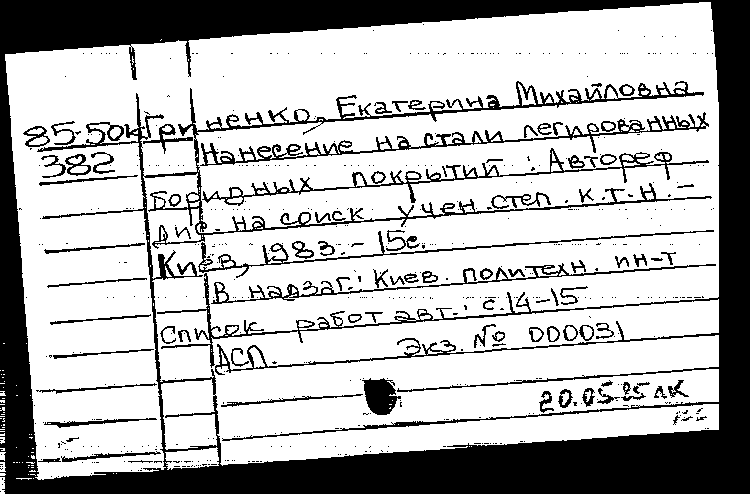 85-50к Гриненко, Екатерина Михайловна
382 Нанесение на стали легированных
боридных покрытий : Автореф
дис. на соиск. учен. степ. к.т.н. –
Киев, 1983. – 15с.
В надзаг.: Киев. политехн. ин-т
Список работ авт.: с.14-15
ДСП. Экз. № 000031
20.05.85 ЛК